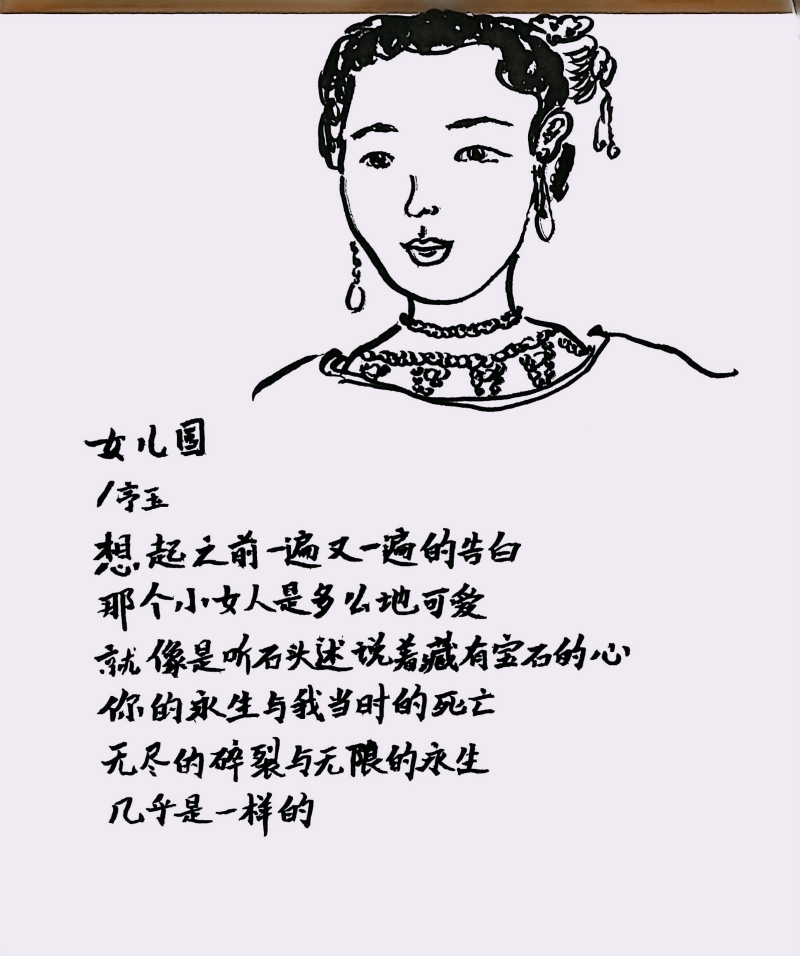 女儿国
/亭玉
想起之前一遍又一遍的告白
那个小女人是多么地可爱
就像是听石头述说着藏有宝石的心
你的永生与我当时的死亡
无尽的碎裂与无限的永生
几乎是一样的